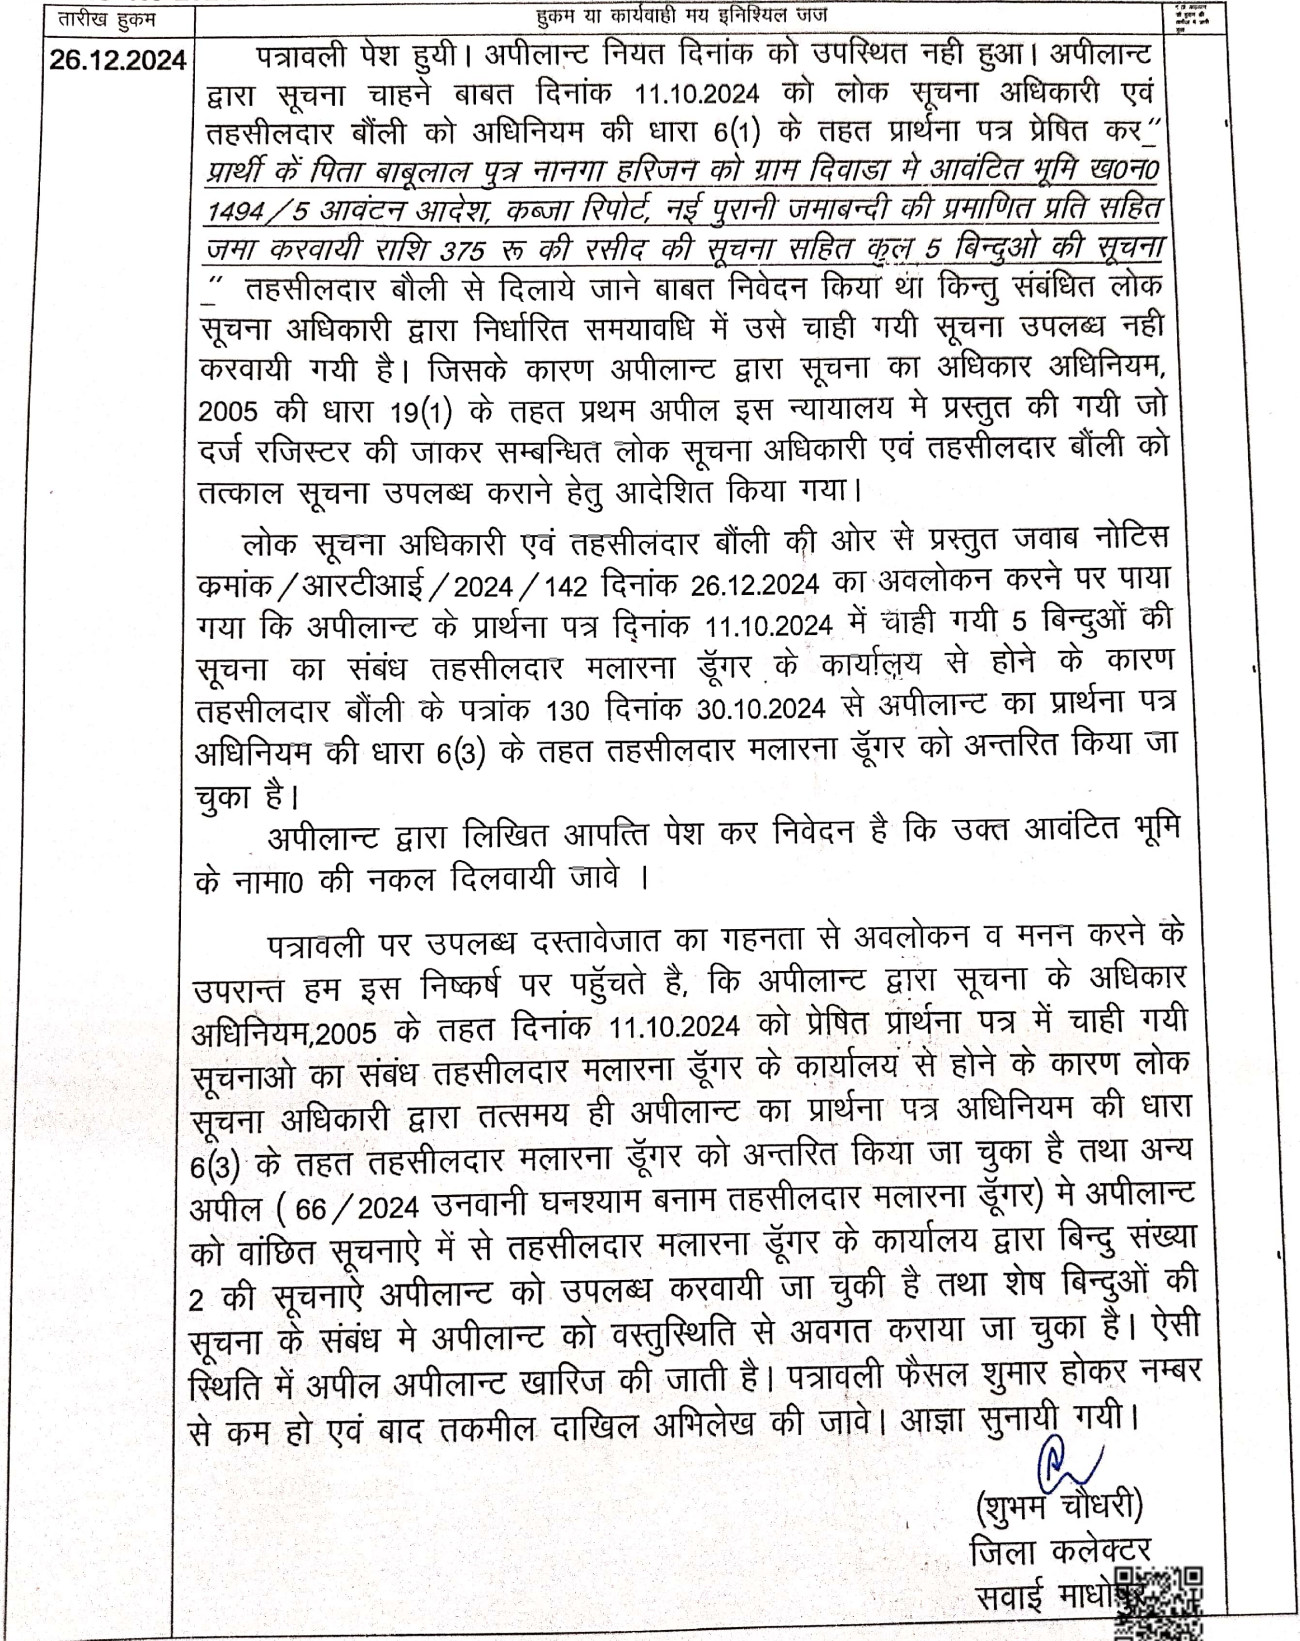 तारीख हुकम
हुकम या कार्यवाही मय इनिश्यिल जज
26.12.2024
पत्रावली पेश हुयी। अपीलान्ट नियत दिनांक को उपस्थित नही हुआ। अपीलान्ट
द्वारा सूचना चाहने बाबत दिनांक 11.10.2024 को लोक सूचना अधिकारी एवं
तहसीलदार बौंली को अधिनियम की धारा 6(1) के तहत प्रार्थना पत्र प्रेषित कर"
प्रार्थी कें पिता बाबूलाल पुत्र नानगा हरिजन को ग्राम दिवाडा मे आवंटित भूमि ख0न0
1494/5 आवंटन आदेश, कब्जा रिपोर्ट, नई पुरानी जमाबन्दी की प्रमाणित प्रति सहित
जमा करवायी राशि 375 रू की रसीद की सूचना सहित कुल 5 बिन्दुओ की सूचना
" तहसीलदार बौली से दिलाये जाने बाबत निवेदन किया था किन्तु संबंधित लोक
सूचना अधिकारी द्वारा निर्धारित समयावधि में उसे चाही गयी सूचना उपलब्ध नही
करवायी गयी है। जिसके कारण अपीलान्ट द्वारा सूचना का अधिकार अधिनियम,
2005 की धारा 19(1) के तहत प्रथम अपील इस न्यायालय मे प्रस्तुत की गयी जो
दर्ज रजिस्टर की जाकर सम्बन्धित लोक सूचना अधिकारी एवं तहसीलदार बौंली को
तत्काल सूचना उपलब्ध कराने हेतु आदेशित किया गया।
लोक सूचना अधिकारी एवं तहसीलदार बौंली की ओर से प्रस्तुत जवाब नोटिस
कमांक/आरटीआई/2024/142 दिनांक 26.12.2024 का अवलोकन करने पर पाया
गया कि अपीलान्ट के प्रार्थना पत्र दिनांक 11.10.2024 में चाही गयी 5 बिन्दुओं की
सूचना का संबंध तहसीलदार मलारना डूॅगर के कार्यालय से होने के कारण
तहसीलदार बौंली के पत्रांक 130 दिनांक 30.10.2024 से अपीलान्ट का प्रार्थना पत्र
अधिनियम की धारा 6(3) के तहत तहसीलदार मलारना डूॅगर को अन्तरित किया जा
चुका है।
अपीलान्ट द्वारा लिखित आपत्ति पेश कर निवेदन है कि उक्त आवंटित भूमि
के नामा0 की नकल दिलवायी जावे ।
पत्रावली पर उपलब्ध दस्तावेजात का गहनता से अवलोकन व मनन करने के
उपरान्त हम इस निष्कर्ष पर पहुॅचते है, कि अपीलान्ट द्वारा सूचना के अधिकार
अधिनियम,2005 के तहत दिनांक 11.10.2024 को प्रेषित प्रार्थना पत्र में चाही गयी
सूचनाओ का संबंध तहसीलदार मलारना डूॅगर के कार्यालय से होने के कारण लोक
सूचना अधिकारी द्वारा तत्समय ही अपीलान्ट का प्रार्थना पत्र अधिनियम की धारा
6(3) के तहत तहसीलदार मलारना डूॅगर को अन्तरित किया जा चुका है तथा अन्य
अपील ( 66/2024 उनवानी घनश्याम बनाम तहसीलदार मलारना डूॅगर) मे अपीलान्ट
को वांछित सूचनाऐ में से तहसीलदार मलारना डूॅगर के कार्यालय द्वारा बिन्दु संख्या
2 की सूचनाऐ अपीलान्ट को उपलब्ध करवायी जा चुकी है तथा शेष बिन्दुओं की
सूचना के संबंध मे अपीलान्ट को वस्तुस्थिति से अवगत कराया जा चुका है। ऐसी
स्थिति में अपील अपीलान्ट खारिज की जाती है। पत्रावली फैसल शुमार होकर नम्बर
से कम हो एवं बाद तकमील दाखिल अभिलेख की जावे। आज्ञा सुनायी गयी।
(शुभम चौधरी)
जिला कलेक्टर
सवाई माधोपुर